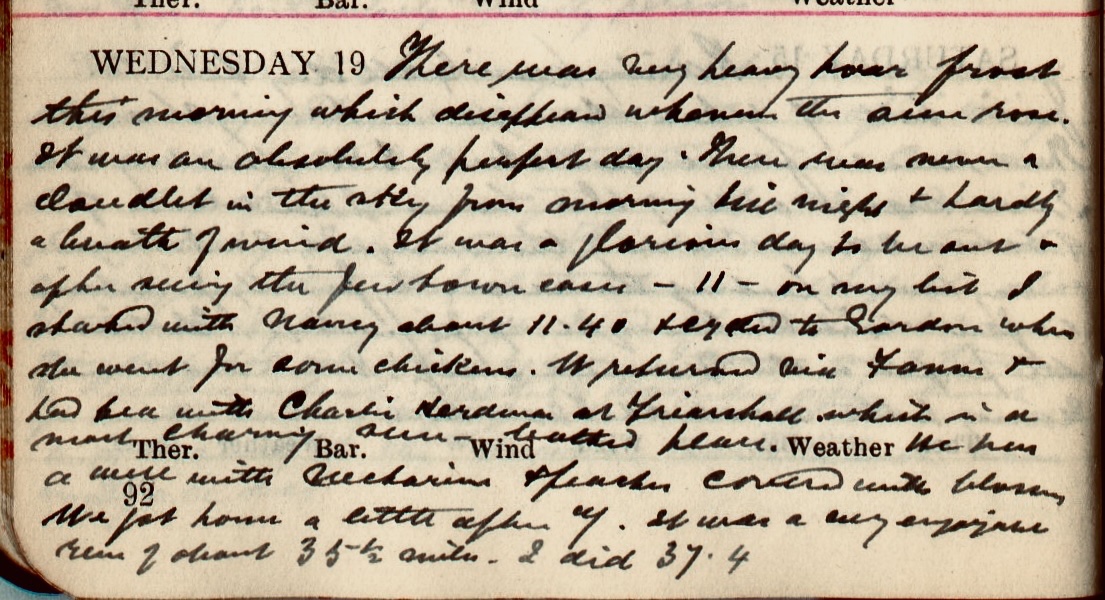 Ther. Bar. Wind Weather
WEDNESDAY 19 There was very heavy hoar frost
this morning which disappeared whenever the sun rose.
It was an absolutely perfect day. There was never a
cloudlet in the sky from morning till night & hardly
a breath of wind. It was a glorious day to be out &
after seeing the few town cases – 11 – on my list I
started with Nancy about 11.40 & cycled to Gordon where
she went for some chickens. We returned via Fanns &
had tea with Charlie Herdman at Friarshall which is a
most charming situated place. He has
Ther. Bar. Wind Weather
a wall with nectarines & peaches covered with blossom
92
We got home a little after 7. It was a very enjoyable
run of about 35½ miles. I did 37.4